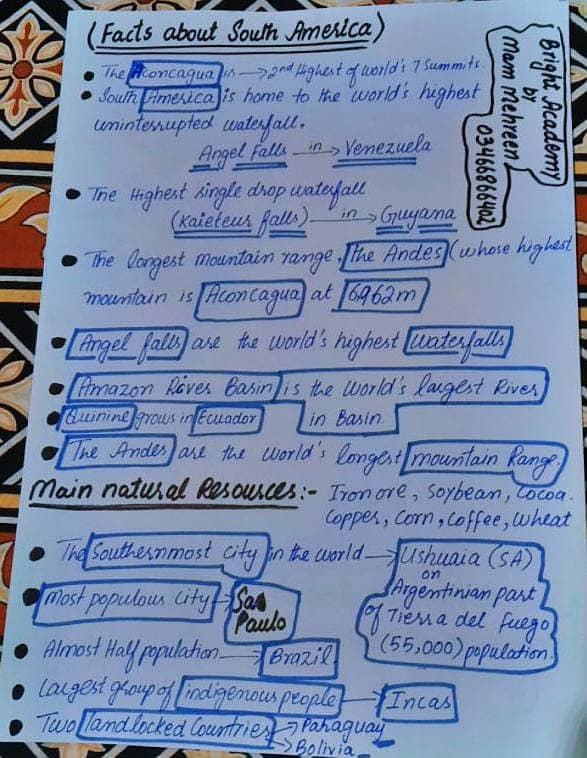 (Facts about South America)
Bright Academy
by
Mam Mehreen
03466866402
• The Aconcagua is → 2nd Highest of world's 7 Summits.
• South America is home to the world's highest
uninterrupted waterfall.
Angel Falls in → Venezuela
• The Highest single drop waterfall
(Kaieteur falls) in → Guyana
• The longest mountain range, the Andes (whose highest
mountain is Aconcagua at 6,962m
• Angel falls are the world's highest waterfalls
• Amazon River Basin is the world's largest River
in Basin.
• Quinine grows in Ecuador
• The Andes are the world's longest mountain Range.
Main natural Resources:- Iron ore, Soybean, Cocoa.
Copper, Corn, Coffee, Wheat
• The Southernmost city in the world → Ushuaia (SA)
on
Argentinian part
of Tierra del fuego
(55,000) population
• Most populous City → Sao
Paulo
• Almost Half population → Brazil
• Largest group of indigenous people → Incas
• Two landlocked Countries → Paraguay
→ Bolivia